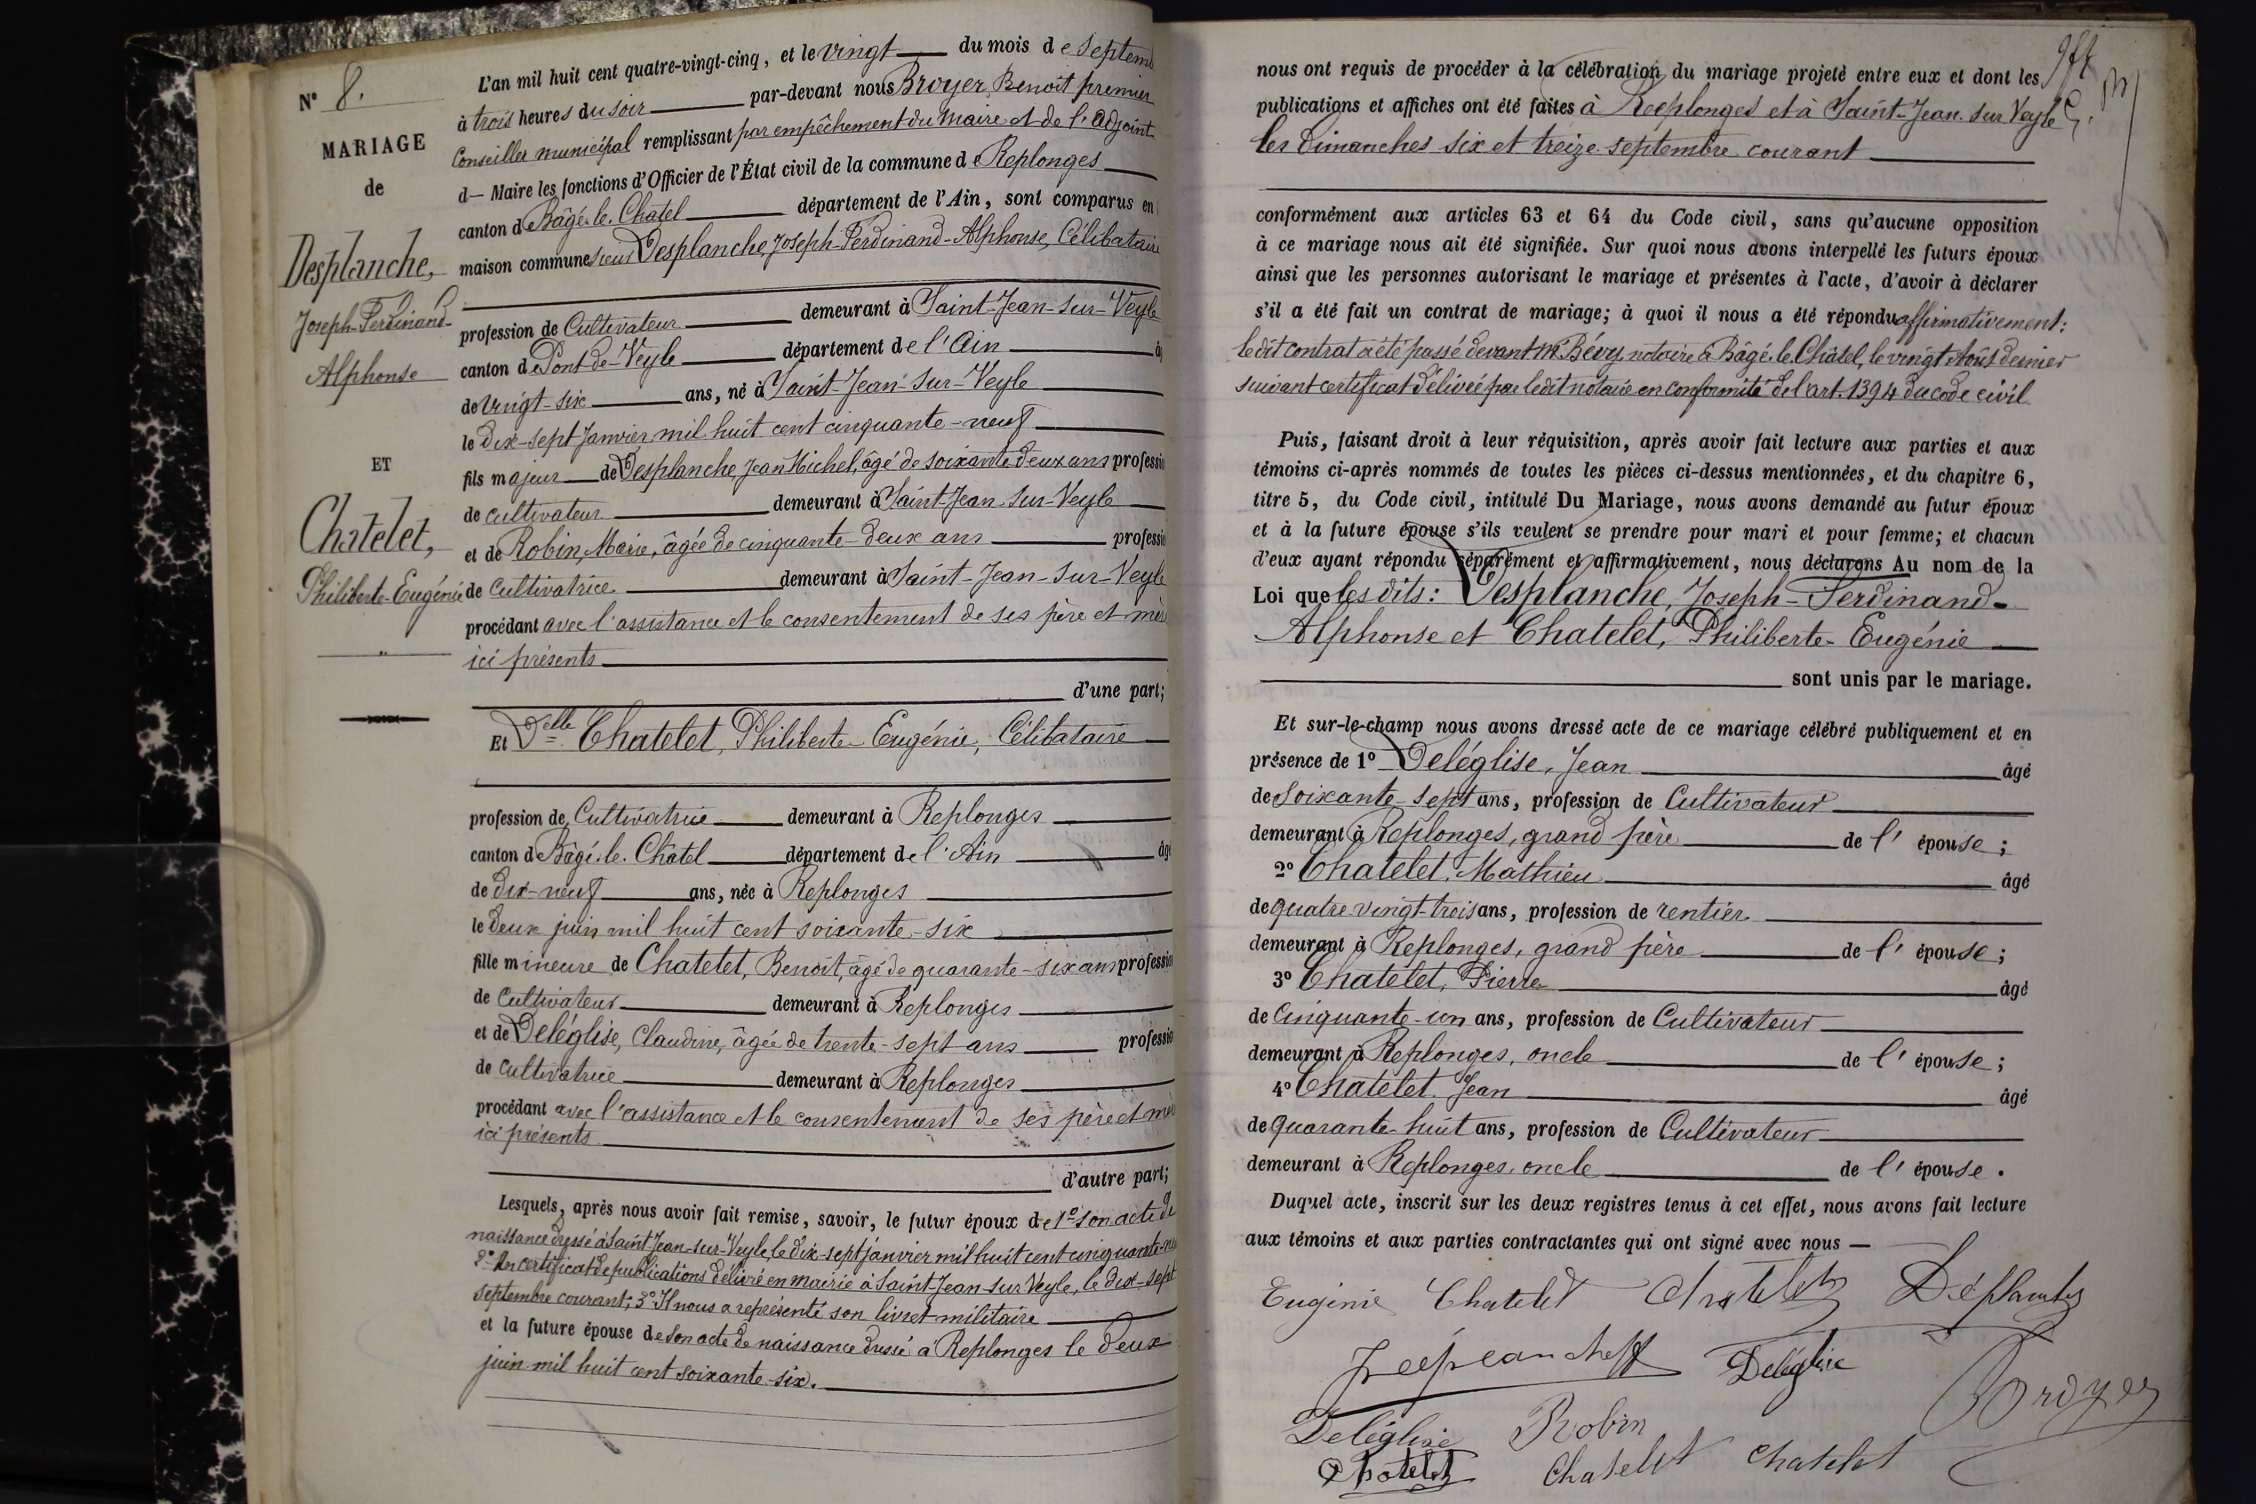 N° 8.
MARIAGE
de
Desplanche,
Joseph-Ferdinand-
Alphonse
ET
Chatelet,
Philiberte-Eugénie
L'an mil huit cent quatre-vingt-cinq, et le vingt du mois de septem
à trois heures du soir par-devant nous Broyer, Benoît premier
Conseiller municipal remplissant par empêchement du maire et de l'adjoint
d— Maire les fonctions d'Officier de l'État civil de la commune de Replonges
canton de Bâgé-le-Chatel département de l'Ain, sont comparus en
maison commune sieur Desplanche, Joseph-Ferdinand-Alphonse, Célibataire
profession de Cultivateur demeurant à Saint-Jean-sur-Veyle
canton de Pont-de-Veyle département de l'Ain â
de vingt-six ans, né à Saint-Jean-sur-Veyle
le dix-sept Janvier mil huit cent cinquante-neuf
fils majeur de Desplanche, Jean Michel, âgé de soixante deux ans professio
de cultivateur demeurant à Saint-Jean-sur-Veyle
et de Robin, Marie, âgée de cinquante-deux ans professi
de cultivatrice demeurant à Saint-Jean-sur-Veyle
procédant avec l'assistance et le consentement de ses père et mère
ici présents
d'une part;
Et Delle Chatelet, Philiberte-Eugénie, Célibataire
profession de Cultivatrice demeurant à Replonges
canton de Bâgé-le-Châtel département de l'Ain âgé
de dix-neuf ans, née à Replonges
le deux juin mil huit cent soixante-six
fille mineure de Chatelet, Benoît, âgé de quarante-six ans professio
de cultivateur demeurant à Replonges
et de Deléglise, Claudine, âgée de trente-sept ans professio
de cultivatrice demeurant à Replonges
procédant avec l'assistance et le consentement de ses père et mère
ici présents
d'autre part;
Lesquels, après nous avoir fait remise, savoir, le futur époux de 1° son acte de
naissance dressé à Saint Jean-sur-Veyle, le dix-sept janvier mil huit cent cinquante-neuf
2° Un certificat de publications délivré en mairie à Saint-Jean-sur Veyle, le dix-sept
septembre courant; 3° Il nous a représenté son livret militaire
et la future épouse de son acte de naissance dressé à Replonges le deux
juin mil huit cent soixante-six.
nous ont requis de procéder à la célébration du mariage projeté entre eux et dont les
publications et affiches ont été faites à Replonges et à Saint-Jean-sur Veyle
les dimanches six et treize septembre courant
conformément aux articles 63 et 64 du Code civil, sans qu'aucune opposition
à ce mariage nous ait été signifiée. Sur quoi nous avons interpellé les futurs époux
ainsi que les personnes autorisant le mariage et présentes à l'acte, d'avoir à déclarer
s'il a été fait un contrat de mariage; à quoi il nous a été répondu affirmativement:
le dit contrat a été passé devant Me Bévy, notaire à Bâgé-le-Châtel, le vingt Août dernier
suivant certificat délivré par le dit notaire en conformité de l'art. 1394 du code civil
Puis, faisant droit à leur réquisition, après avoir fait lecture aux parties et aux
témoins ci-après nommés de toutes les pièces ci-dessus mentionnées, et du chapitre 6,
titre 5, du Code civil, intitulé Du Mariage, nous avons demandé au futur époux
et à la future épouse s'ils veulent se prendre pour mari et pour femme; et chacun
d'eux ayant répondu séparément et affirmativement, nous déclarons Au nom de la
Loi que les dits: Desplanche, Joseph-Ferdinand-
Alphonse et Chatelet, Philiberte-Eugénie
sont unis par le mariage.
Et sur-le-champ nous avons dressé acte de ce mariage célébré publiquement et en
présence de 1° Deléglise, Jean âgé
de soixante-sept ans, profession de Cultivateur
demeurant à Replonges, grand père de l'épouse;
2° Chatelet, Mathieu âgé
de quatre vingt-trois ans, profession de rentier
demeurant à Replonges, grand père de l'épouse;
3° Chatelet, Pierre âgé
de cinquante-un ans, profession de Cultivateur
demeurant à Replonges, oncle de l'épouse;
4° Chatelet, Jean âgé
de quarante-huit ans, profession de Cultivateur
demeurant à Replonges, oncle de l'épouse.
Duquel acte, inscrit sur les deux registres tenus à cet effet, nous avons fait lecture
aux témoins et aux parties contractantes qui ont signé avec nous —
Eugénie Chatelet Chatelet Déplanche
Deléglise
Broyer
Deléglise Robin
Chatelet Chatelet Chatelet